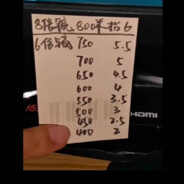 8倍镜 800米 指6
6倍镜 750 5.5
700 5
650 4.5
600 4
550 3.5
500 3
450 2.5
400 2
HDMI